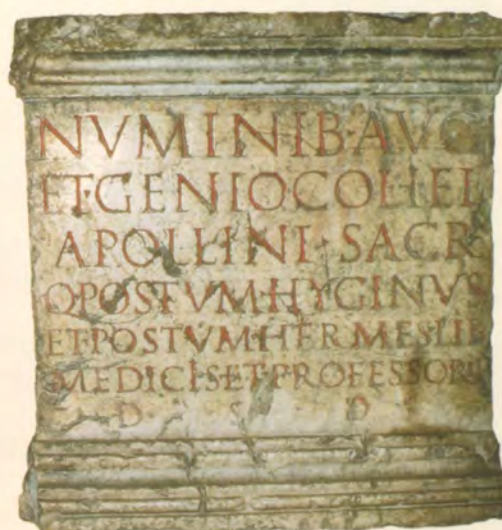 NVMINIB·AVG
ET·GENIO COL HEL
APOLLINI·SACR
Q POSTVM·HYGINVS
ET·POSTVM·HERMES LIB
MEDICIS ET·PROFESSORIB
D S D